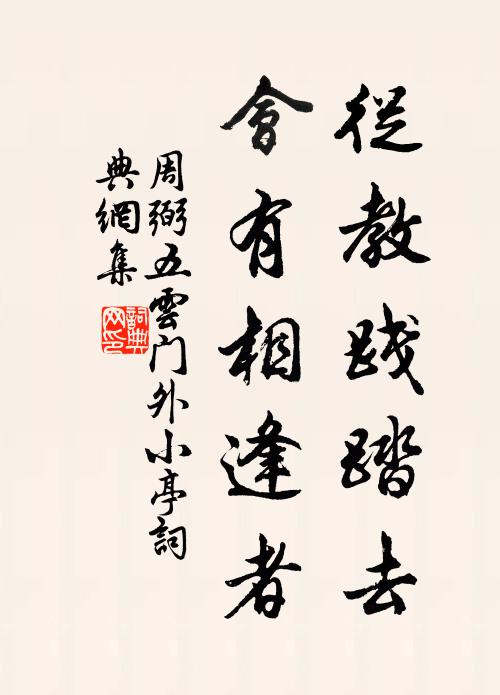 從教踐踏去
會有相逢者
周弼五雲门外小亭詞
典網集
詞典
网印